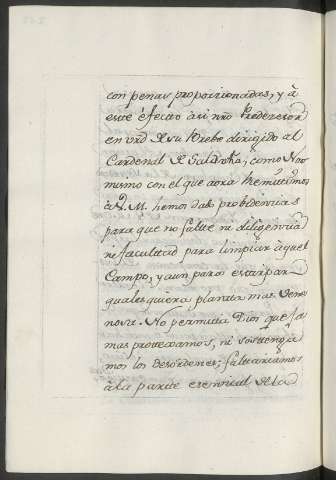 con penas proporcionadas, y à
este efecto asi nro Predecesor
en vrd de su Brebe dirigido al
Cardenal de Saldaña, como Nos
mismo con el que aora hemitimos
à V. M. hemos dado probidencias
para que no falte ni diligencia
ni facultad para limpiar aquel
Campo, y aun para estirpar
qualesquiera plantas mas vene
nosas. No permita Dios que ja
mas protexamos, ni sostenga
mos los desordenes; faltariamos
à la parte esencial de la